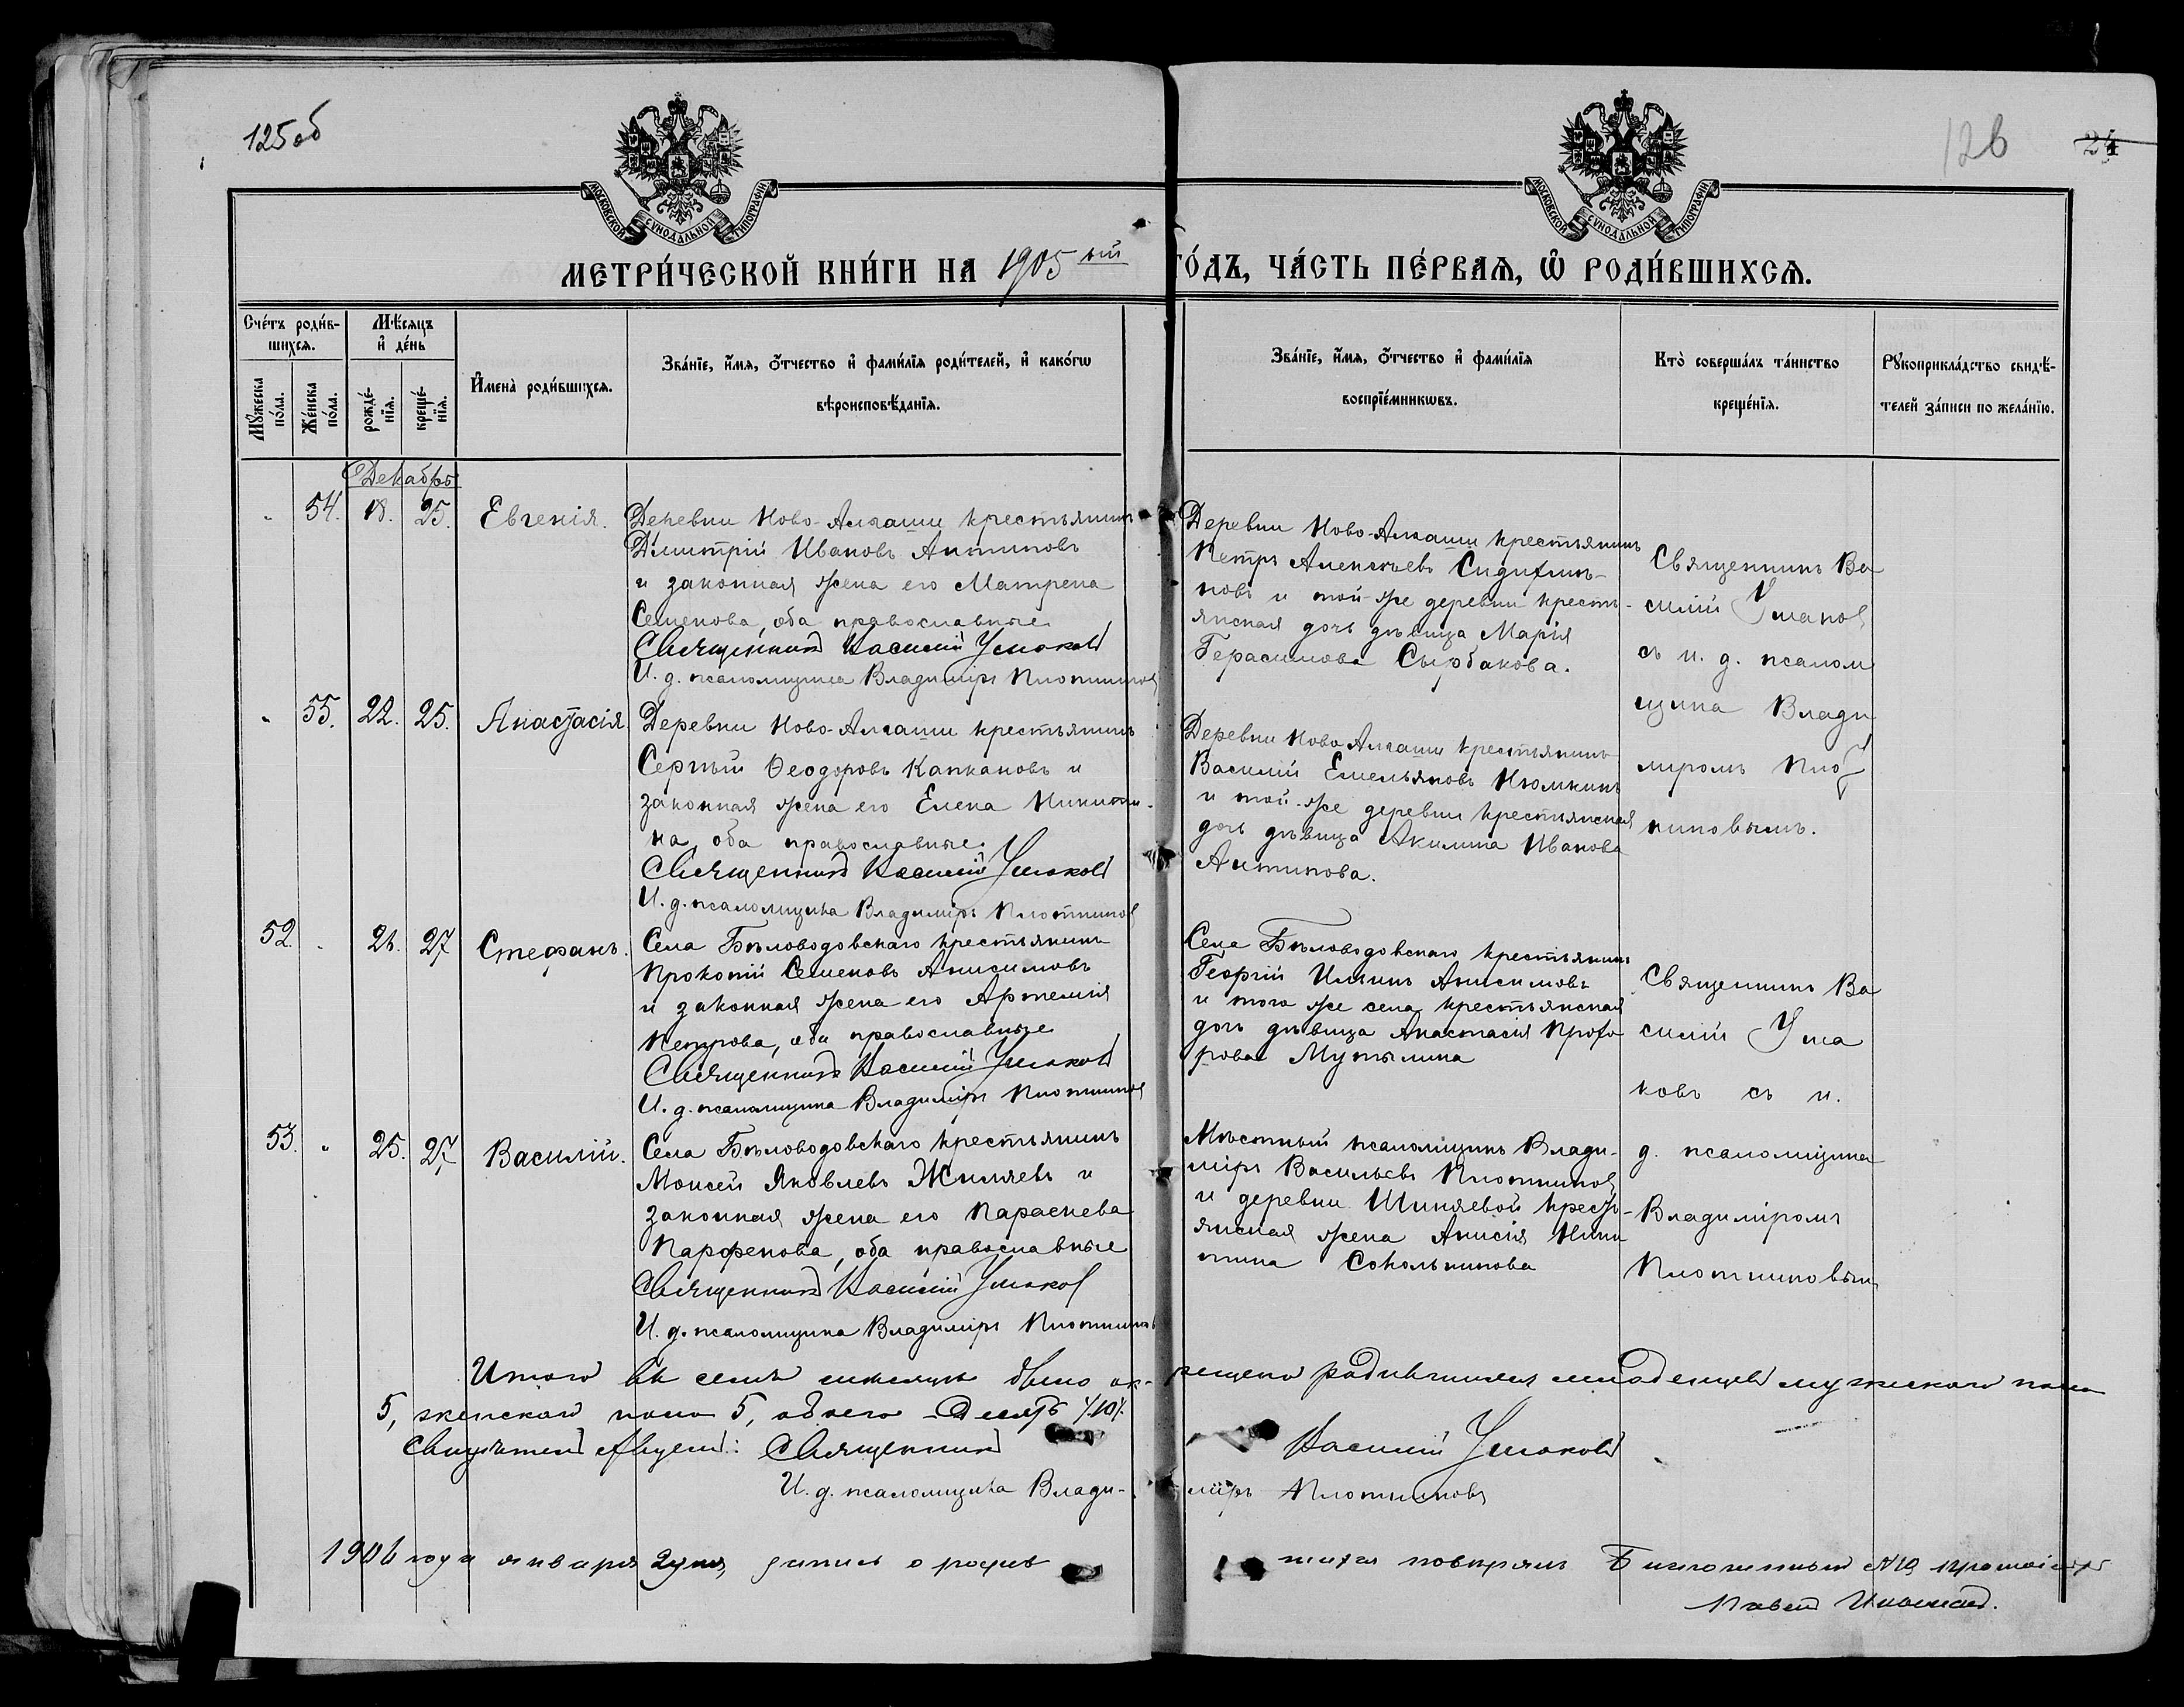 125 об
126
24
МОСКОВСКОЙ СѴНОДАЛЬНОЙ ТИПОГРАФІИ
МОСКОВСКОЙ СѴНОДАЛЬНОЙ ТИПОГРАФІИ
МЕТРИ́ЧЕСКОЙ КНИ́ГИ НА 1905 ый ГО́ДЪ, ЧА́СТЬ ПЕ́РВАѦ, Ѡ҆ РОДИ́ВШИХСѦ.
Сче́тъ роди́в-
шихсѧ.
Мꙋ́жеска по́ла.
Же́нска по́ла.
Мѣ́сѧцъ
и҆ де́нь
рожде́-
нїѧ.
креще́-
нїѧ.
И҆мена̀ роди́вшихсѧ.
Зва́нїе, и҆́мѧ, ѻ҆́тчество и҆ фами́лїѧ роди́телей, и҆ како́гѡ
вѣроисповѣ́данїѧ.
Зва́нїе, и҆́мѧ, ѻ҆́тчество и҆ фами́лїѧ
воспрїе́мникѡвъ.
Кто̀ соверша́лъ та́инство
креще́нїѧ.
Рꙋкоприкла́дство свидѣ́-
телей за́писи по жела́нїю.
Декабрь
54. 18. 25. Евгенія.
Деревни Ново-Алгаши крестьянинъ
Димитрій Ивановъ Антиповъ
и законная жена его Матрена
Семенова, оба православные
Священникъ Василій Ушаковъ
И. д. псаломщика Владиміръ Плотниковъ
Деревни Ново-Алгаши крестьянинъ
Петръ Алексѣевъ
и той-же деревни кресть-
янская дочь дѣвица Марія
Герасимова Сырбакова.
Священникъ Ва
силій Ушаковъ
съ и. д. псалом
щика Влади
міромъ Плот
никовымъ.
55. 22. 25. Анастасія
Деревни Ново-Алгаши крестьянинъ
Сергѣй Ѳеодоровъ Капкановъ и
законная жена его Елена Никити-
на, оба православные
Священникъ Василій Ушаковъ
И. д. псаломщика Владиміръ Плотниковъ
Деревни Ново-Алгаши крестьянинъ
Василій Емельяновъ Нюмкинъ
и той-же деревни крестьянская
дочь дѣвица Акилина Иванова
Антипова.
52. 26. 27 Стефанъ.
Села Бѣловодовскаго крестьянинъ
Прокопій Семеновъ Анисимовъ
и законная жена его Артемія
Петрова, оба православные
Священникъ Василій Ушаковъ
И. д. псаломщика Владиміръ Плотниковъ
Села Бѣловодовскаго крестьянинъ
Георгій Ильинъ Анисимовъ
и того же села крестьянская
дочь дѣвица Анастасія Прохо
рова Мутылина
Священникъ Ва
силій Уша
ковъ съ и.
д. псаломщика
Владиміромъ
Плотниковым
53. 25. 27 Василій.
Села Бѣловодовскаго крестьянинъ
Моисей Яковлевъ Жиляевъ и
законная жена его Параскева
Парфенова, оба православные
Священникъ Василій Ушаковъ
И. д. псаломщика Владиміръ Плотниковъ
Мѣстный псаломщикъ Влади-
міръ Васильевъ Плотниковъ
и деревни Шиняевой кресть-
янская жена Анисія Ники
тина Сокольникова
Итого въ семъ мѣсяцѣ было ок- рещено родившихся младенцевъ мужескаго пола
5, женскаго пола 5, обоего десять /10/.
Священникъ Василій Ушаковъ
И. д. псаломщика Влади- міръ Плотниковъ
1906 года января 2 дня, запись о родив шихся повѣрялъ Благочинный №10 протоіерей
Павелъ